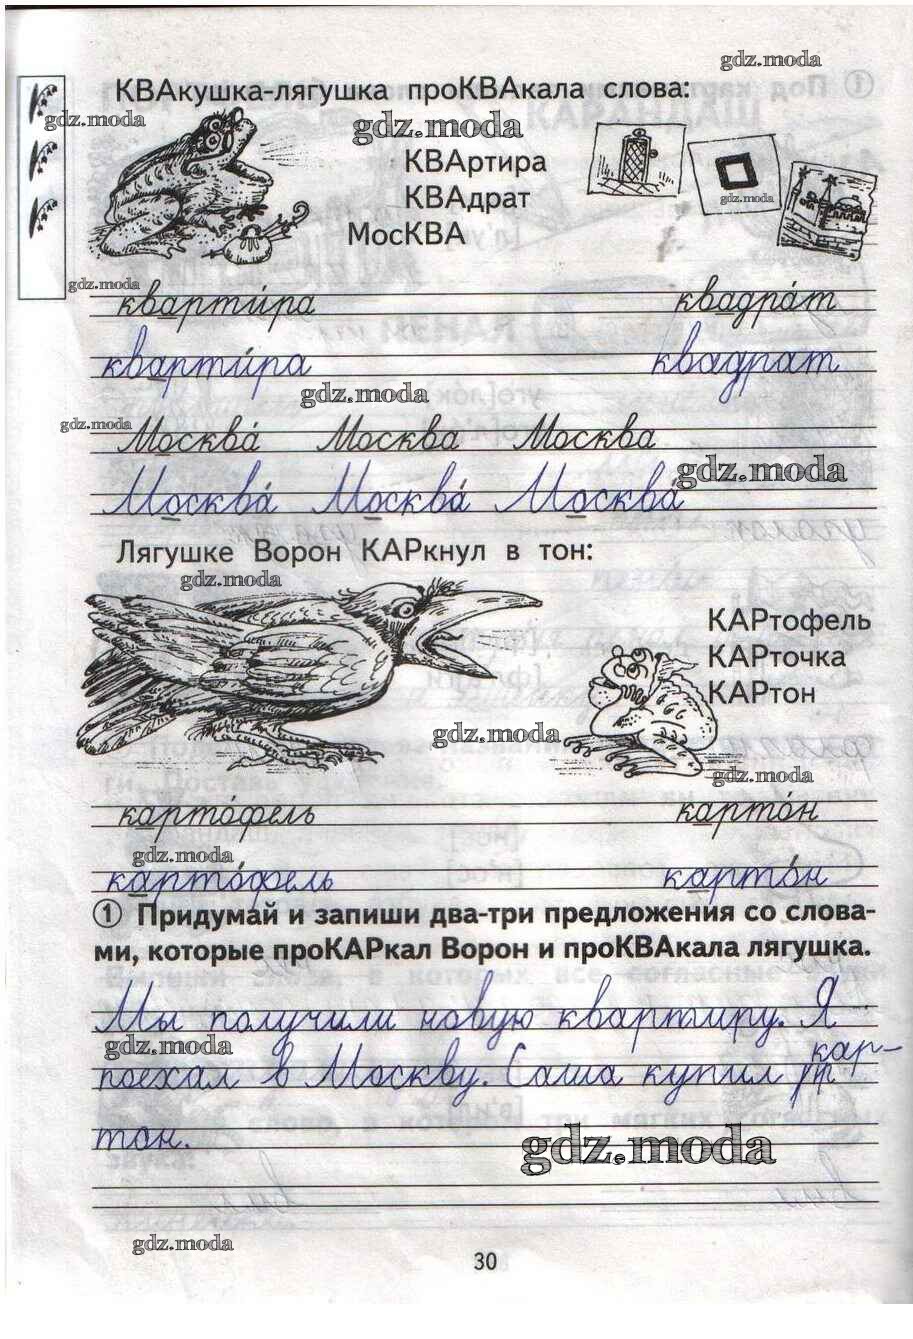 gdz.moda
КВАкушка-лягушка проКВАкала слова:
gdz.moda
gdz.moda
КВАртира
КВАдрат
gdz.moda
МосКВА
gdz.moda
кварти́ра квадра́т
кварти́ра квадрат
gdz.moda
gdz.moda
Москва́ Москва Москва
gdz.moda
Москва́ Москва́ Москва́
Лягушке Ворон КАРкнул в тон:
gdz.moda
КАРтофель
КАРточка
КАРтон
gdz.moda
gdz.moda
карто́фель карто́н
gdz.moda
карто́фель карто́н
1 Придумай и запиши два-три предложения со слова-
ми, которые проКАРкал Ворон и проКВАкала лягушка.
Мы получили новую квартиру. Я
gdz.moda
поехал в Москву. Саша купил кар-
тон.
gdz.moda
gdz.moda
30